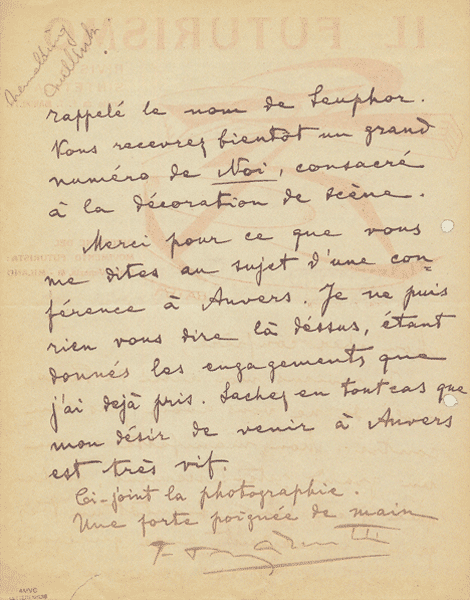 rappelé le nom de Seuphor.
Vous recevrez bientôt un grand
numéro de Noi, consacré
à la décoration de scène.
Merci pour ce que vous
me dites au sujet d'une con=
férence à Anvers. Je ne puis
rien vous dire là déssus, étant
donnés les engagements que
j'ai dejà pris. Sachez en tout cas que
mon désir de venir à Anvers
est très vif.
Ci-joint la photographie.
Une forte poignée de main
IL FUTURISMO